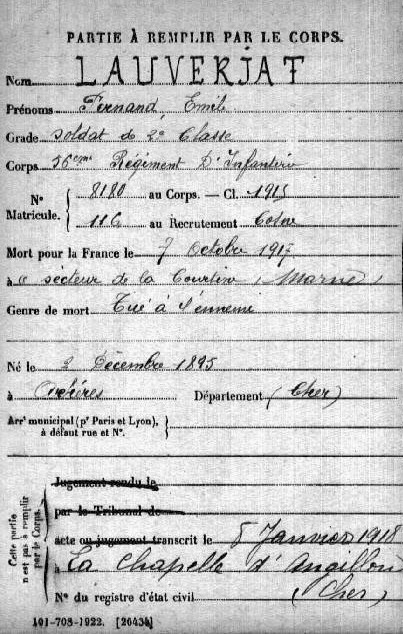 PARTIE À REMPLIR PAR LE CORPS.
Nom LAUVERJAT
Prénoms Fernand, Emile
Grade soldat de 2e Classe
Corps 56eme Régiment D'Infanterie
N° Matricule. { 8180 au Corps. — Cl. 1915
116 au Recrutement Cosne
Mort pour la France le 7 Octobre 1915
à secteur de la Courtine (Marne)
Genre de mort Tué à l'ennemi
Né le 2 Décembre 1895
à Département (Cher)
Arrt municipal (pr Paris et Lyon), à défaut rue et N°. }
Cette partie n'est pas à remplir par le Corps.
Jugement rendu le
par le Tribunal de
acte ou jugement transcrit le 8 Janvier 1918
à La Chapelle d'Angillon
(Cher)
N° du registre d'état civil
101-708-1922. [26434]